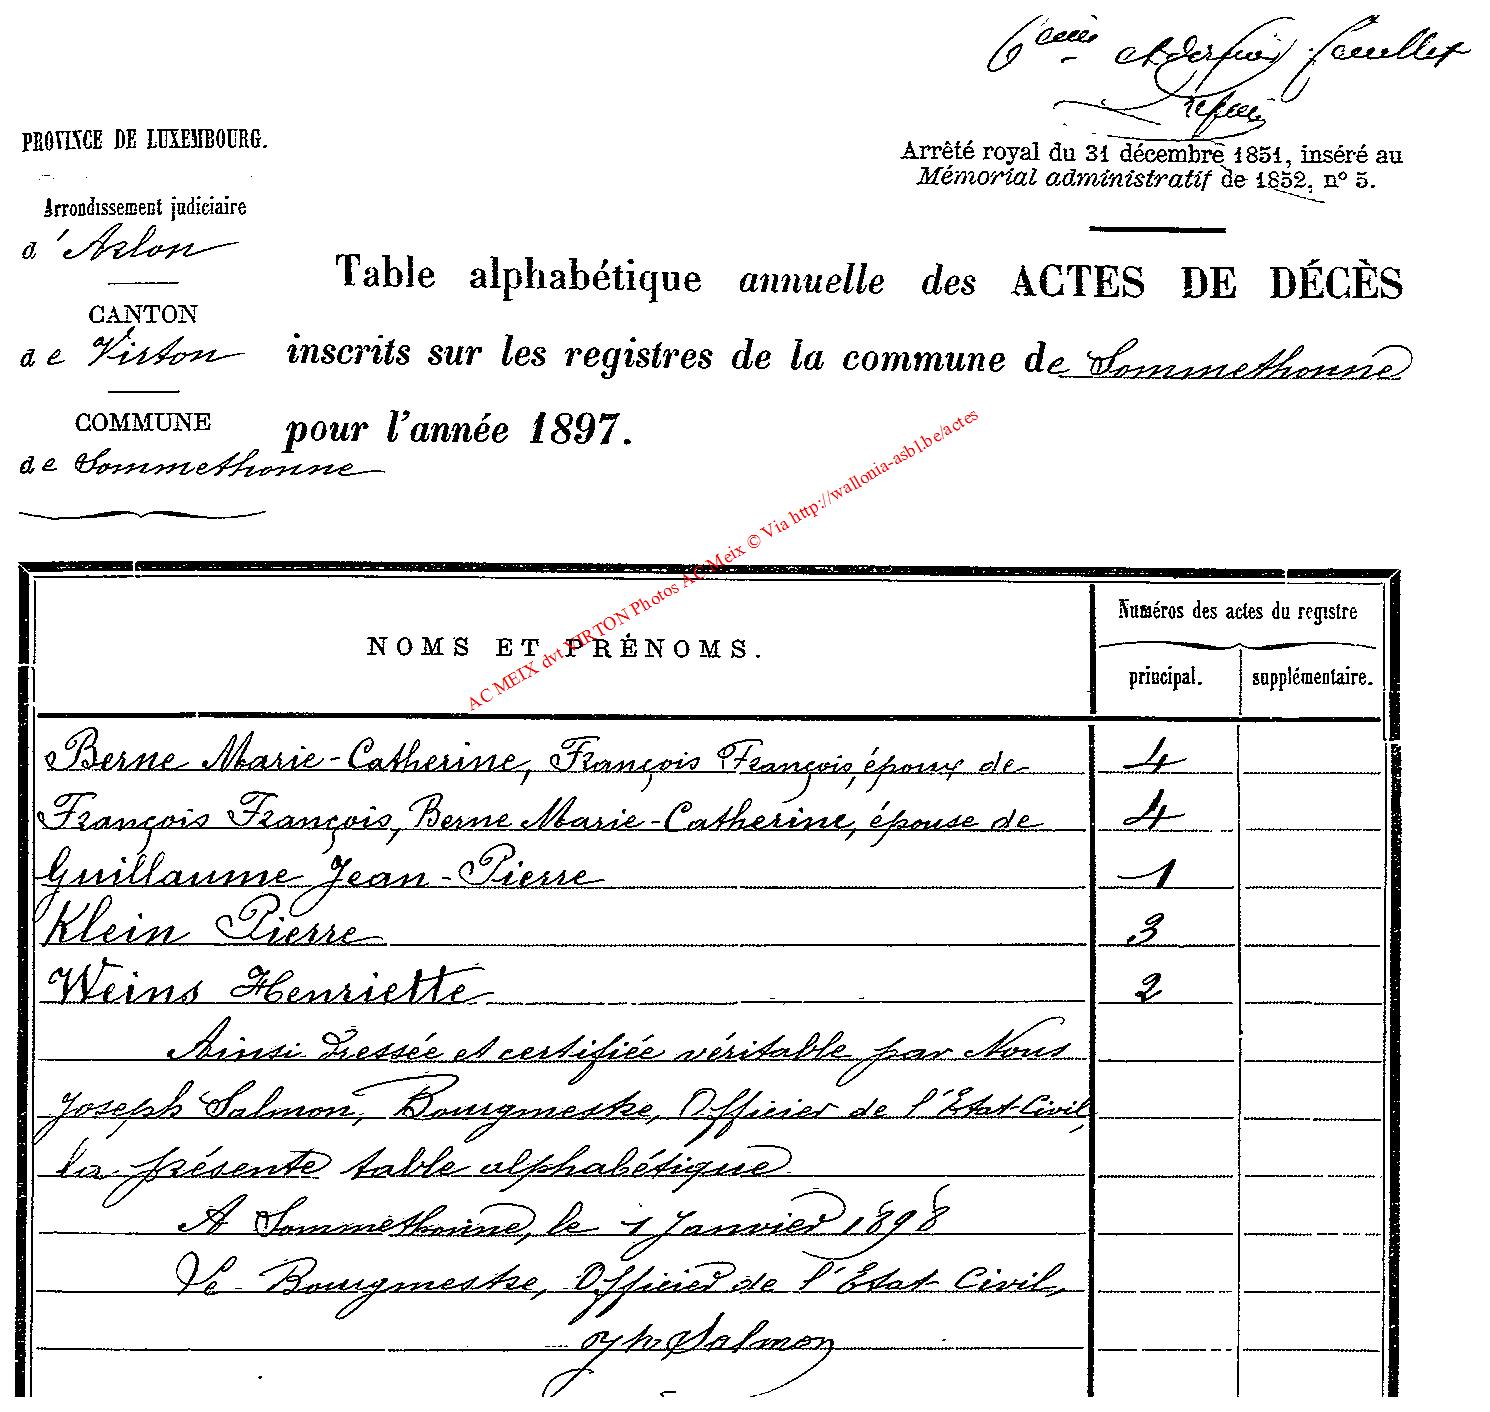 6eme et dernier feuillet
PROVINCE DE LUXEMBOURG.
Arrêté royal du 31 décembre 1851, inséré au
Mémorial administratif de 1852, nº 5.
Arrondissement judiciaire
d'Arlon
CANTON
de Virton
COMMUNE
de Sommethonne
Table alphabétique annuelle des ACTES DE DÉCÈS
inscrits sur les registres de la commune de Sommethonne
pour l'année 1897.
AC MEIX dvt VIRTON Photos AC Meix © Via http://wallonia-asbl.be/actes
NOMS ET PRÉNOMS.
Numéros des actes du registre
principal. supplémentaire.
Berne Marie-Catherine, François François, époux de 4
François François, Berne Marie-Catherine, épouse de 4
Guillaume Jean-Pierre 1
Klein Pierre 3
Weins Henriette 2
Ainsi dressée et certifiée véritable par Nous
Joseph Salmon, Bourgmestre, Officier de l'Etat-Civil,
la présente table alphabétique
A Sommethonne, le 1 Janvier 1898
Le Bourgmestre, Officier de l'Etat Civil,
Jph Salmon